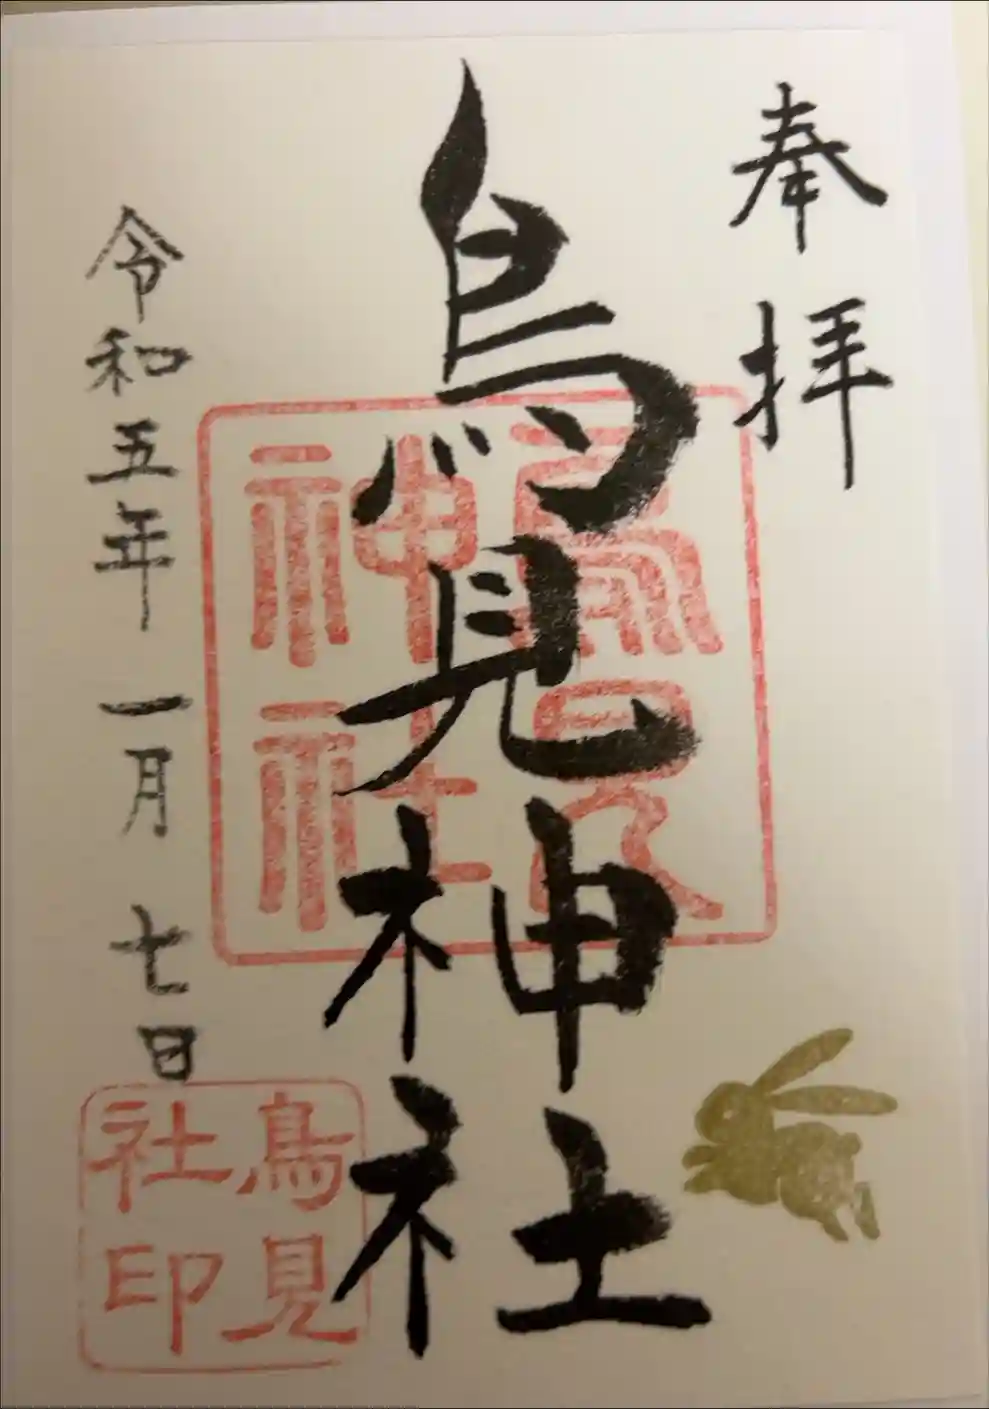 奉拝
鳥見神社
令和五年 一月 七日
鳥見
神社
鳥見
社印